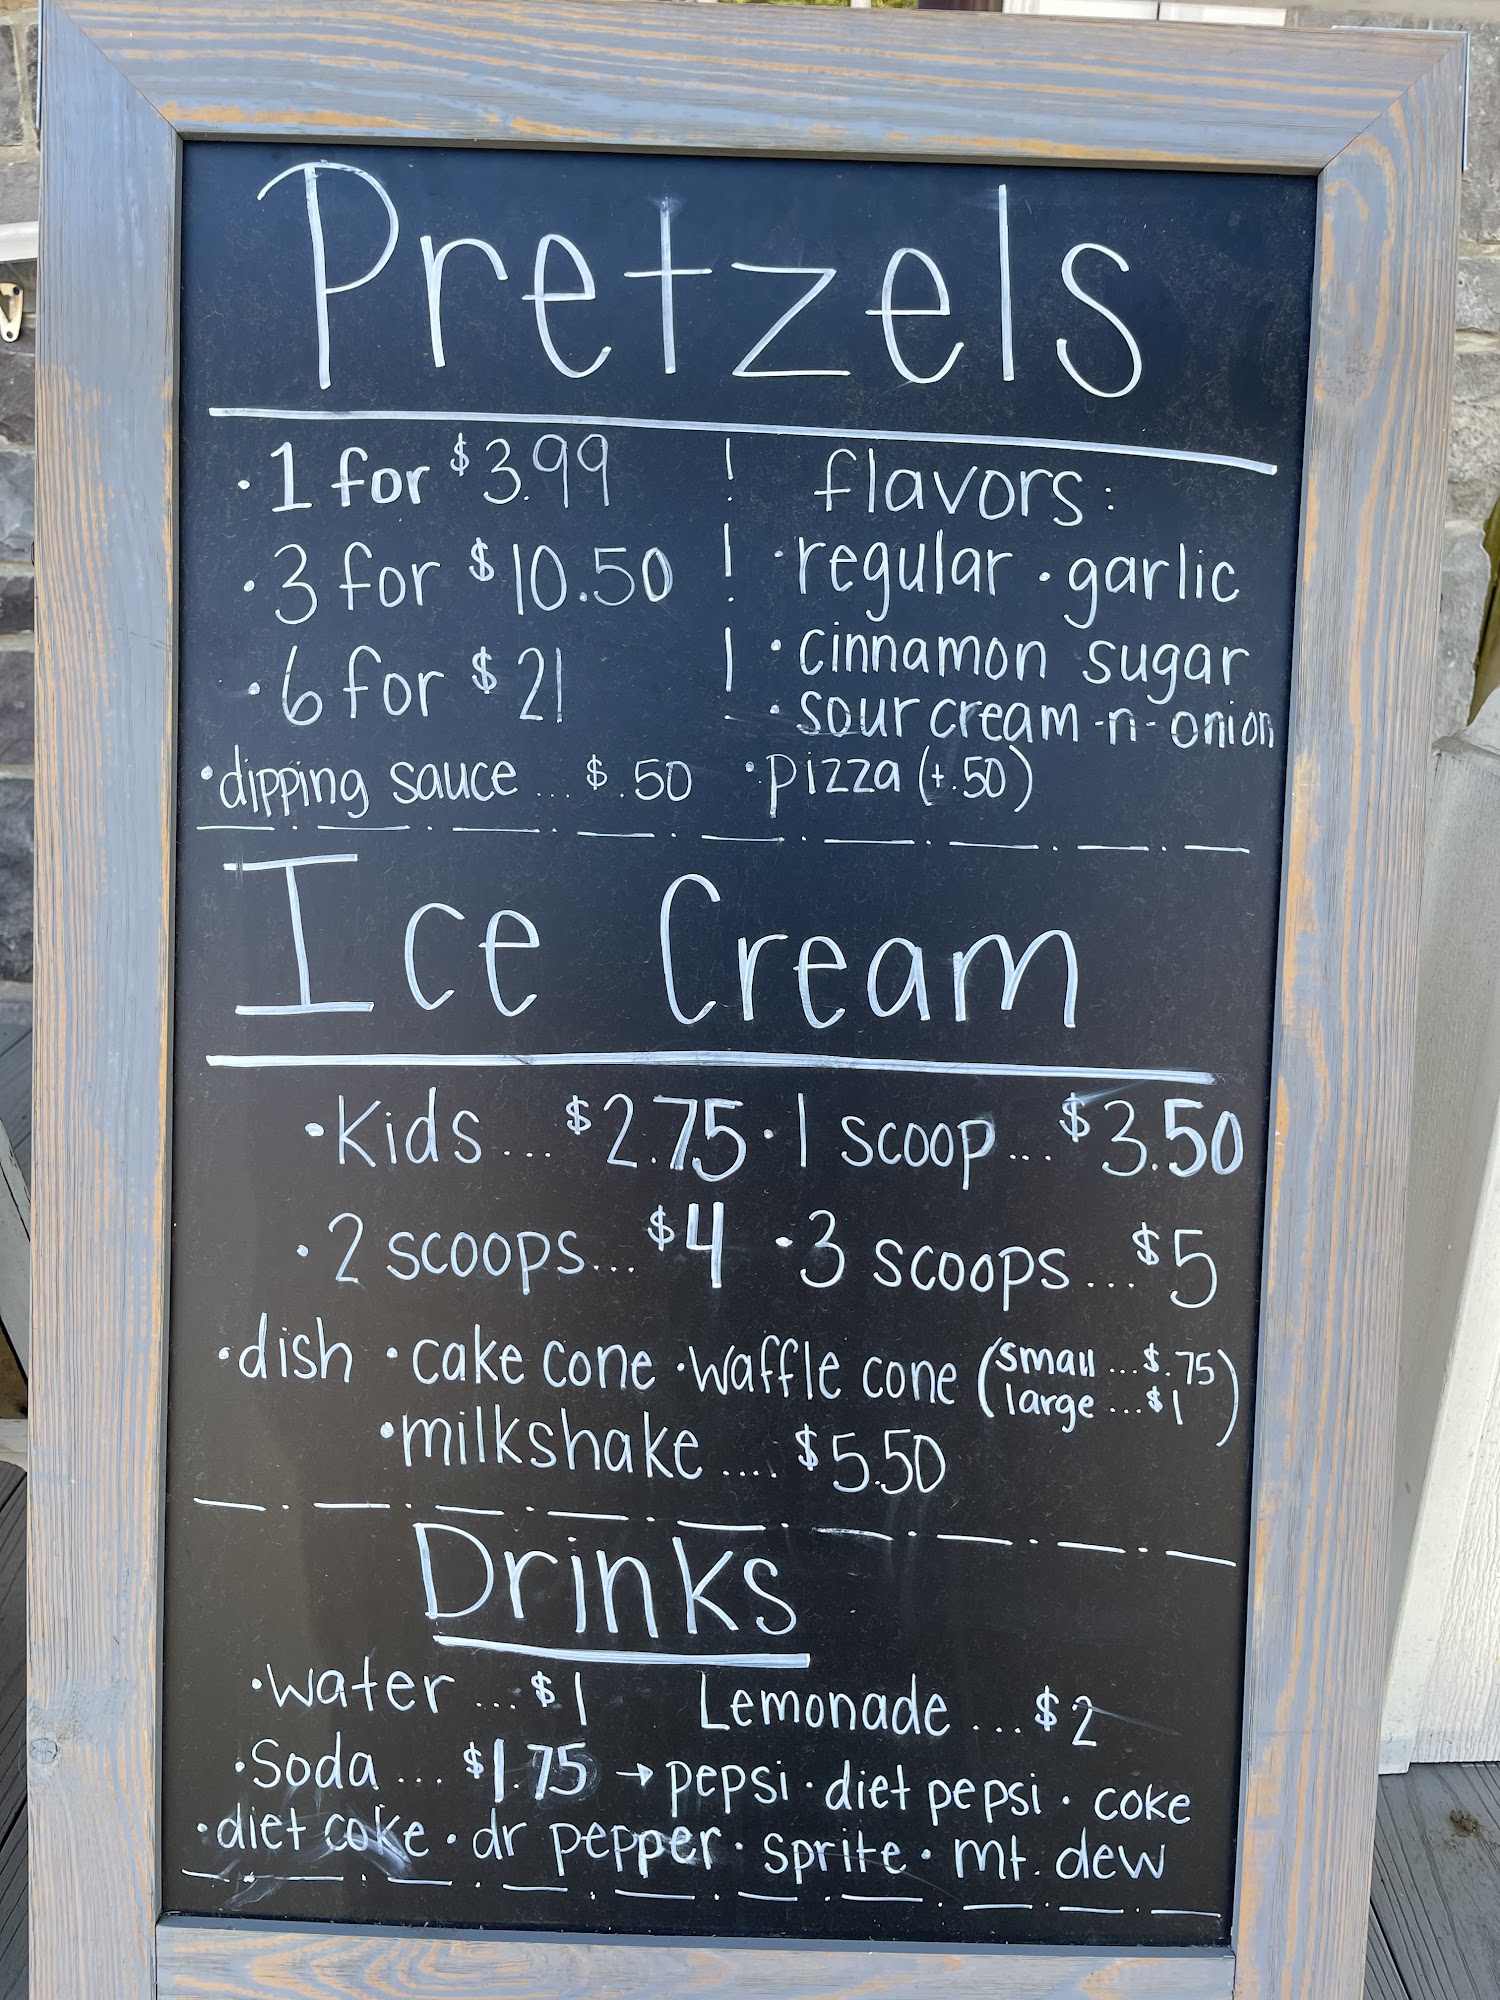 Pretzels
· 1 for $3.99
· 3 for $10.50
· 6 for $21
· dipping sauce ... $.50
flavors:
· regular · garlic
· cinnamon sugar
· sour cream -n- onion
· pizza (+.50)
Ice Cream
· Kids ... $2.75 · 1 scoop ... $3.50
· 2 scoops ... $4 · 3 scoops ... $5
· dish · cake cone · waffle cone (small ... $.75
large ... $1)
· milkshake .... $5.50
Drinks
· water ... $1 Lemonade ... $2
· Soda ... $1.75 → pepsi · diet pepsi · coke
· diet coke · dr pepper · sprite · mt. dew